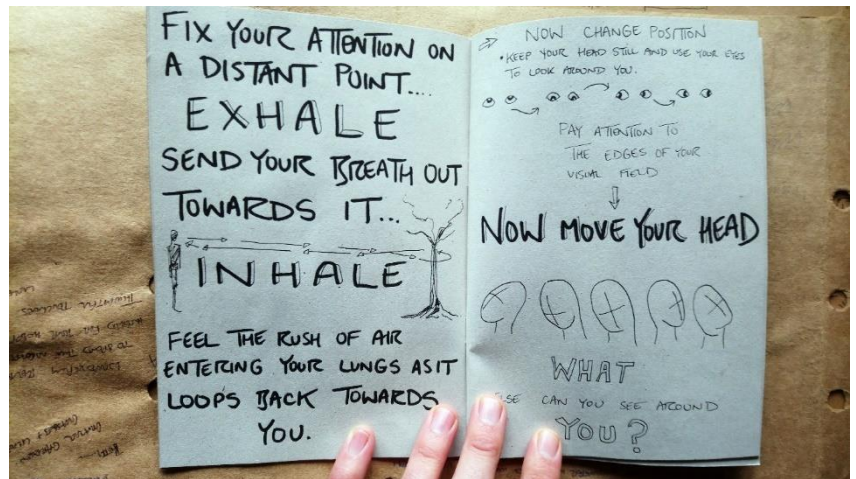 FIX YOUR ATTENTION ON
A DISTANT POINT....
EXHALE
SEND YOUR BREATH OUT
TOWARDS IT...
INHALE
FEEL THE RUSH OF AIR
ENTERING YOUR LUNGS AS IT
LOOPS BACK TOWARDS
YOU.
NOW CHANGE POSITION
• KEEP YOUR HEAD STILL AND USE YOUR EYES
TO LOOK AROUND YOU.
PAY ATTENTION TO
THE EDGES OF YOUR
VISUAL FIELD
NOW MOVE YOUR HEAD
WHAT
ELSE CAN YOU SEE AROUND
YOU?